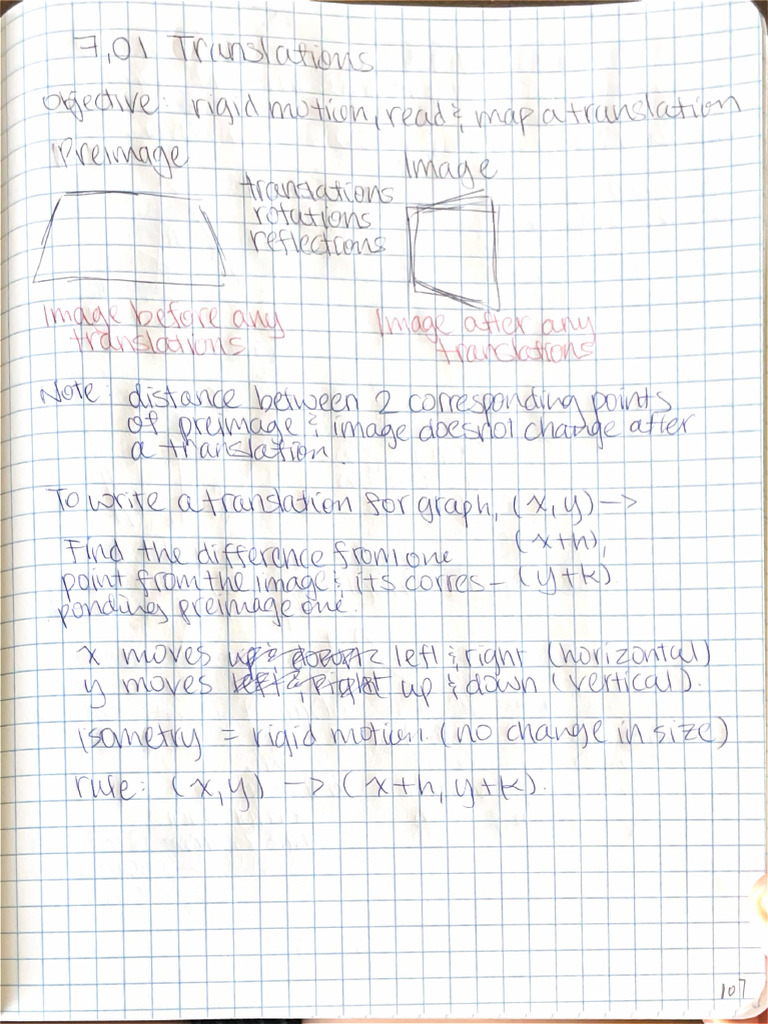 7.01 Translations
Objective: rigid motion, read & map a translation
Preimage
Image
translations
rotations
reflections
Image before any
translations
Image after any
translations
Note: distance between 2 corresponding points
of preimage & image does not change after
a translation.
To write a translation for graph, (x,y) ->
(x+h),
Find the difference from one
point from the image & its corres- (y+k)
ponding preimage one.
x moves up & down left & right (horizontal)
y moves left & right up & down (vertical).
isometry = rigid motion. (no change in size)
rule: (x,y) -> (x+h, y+k).
107